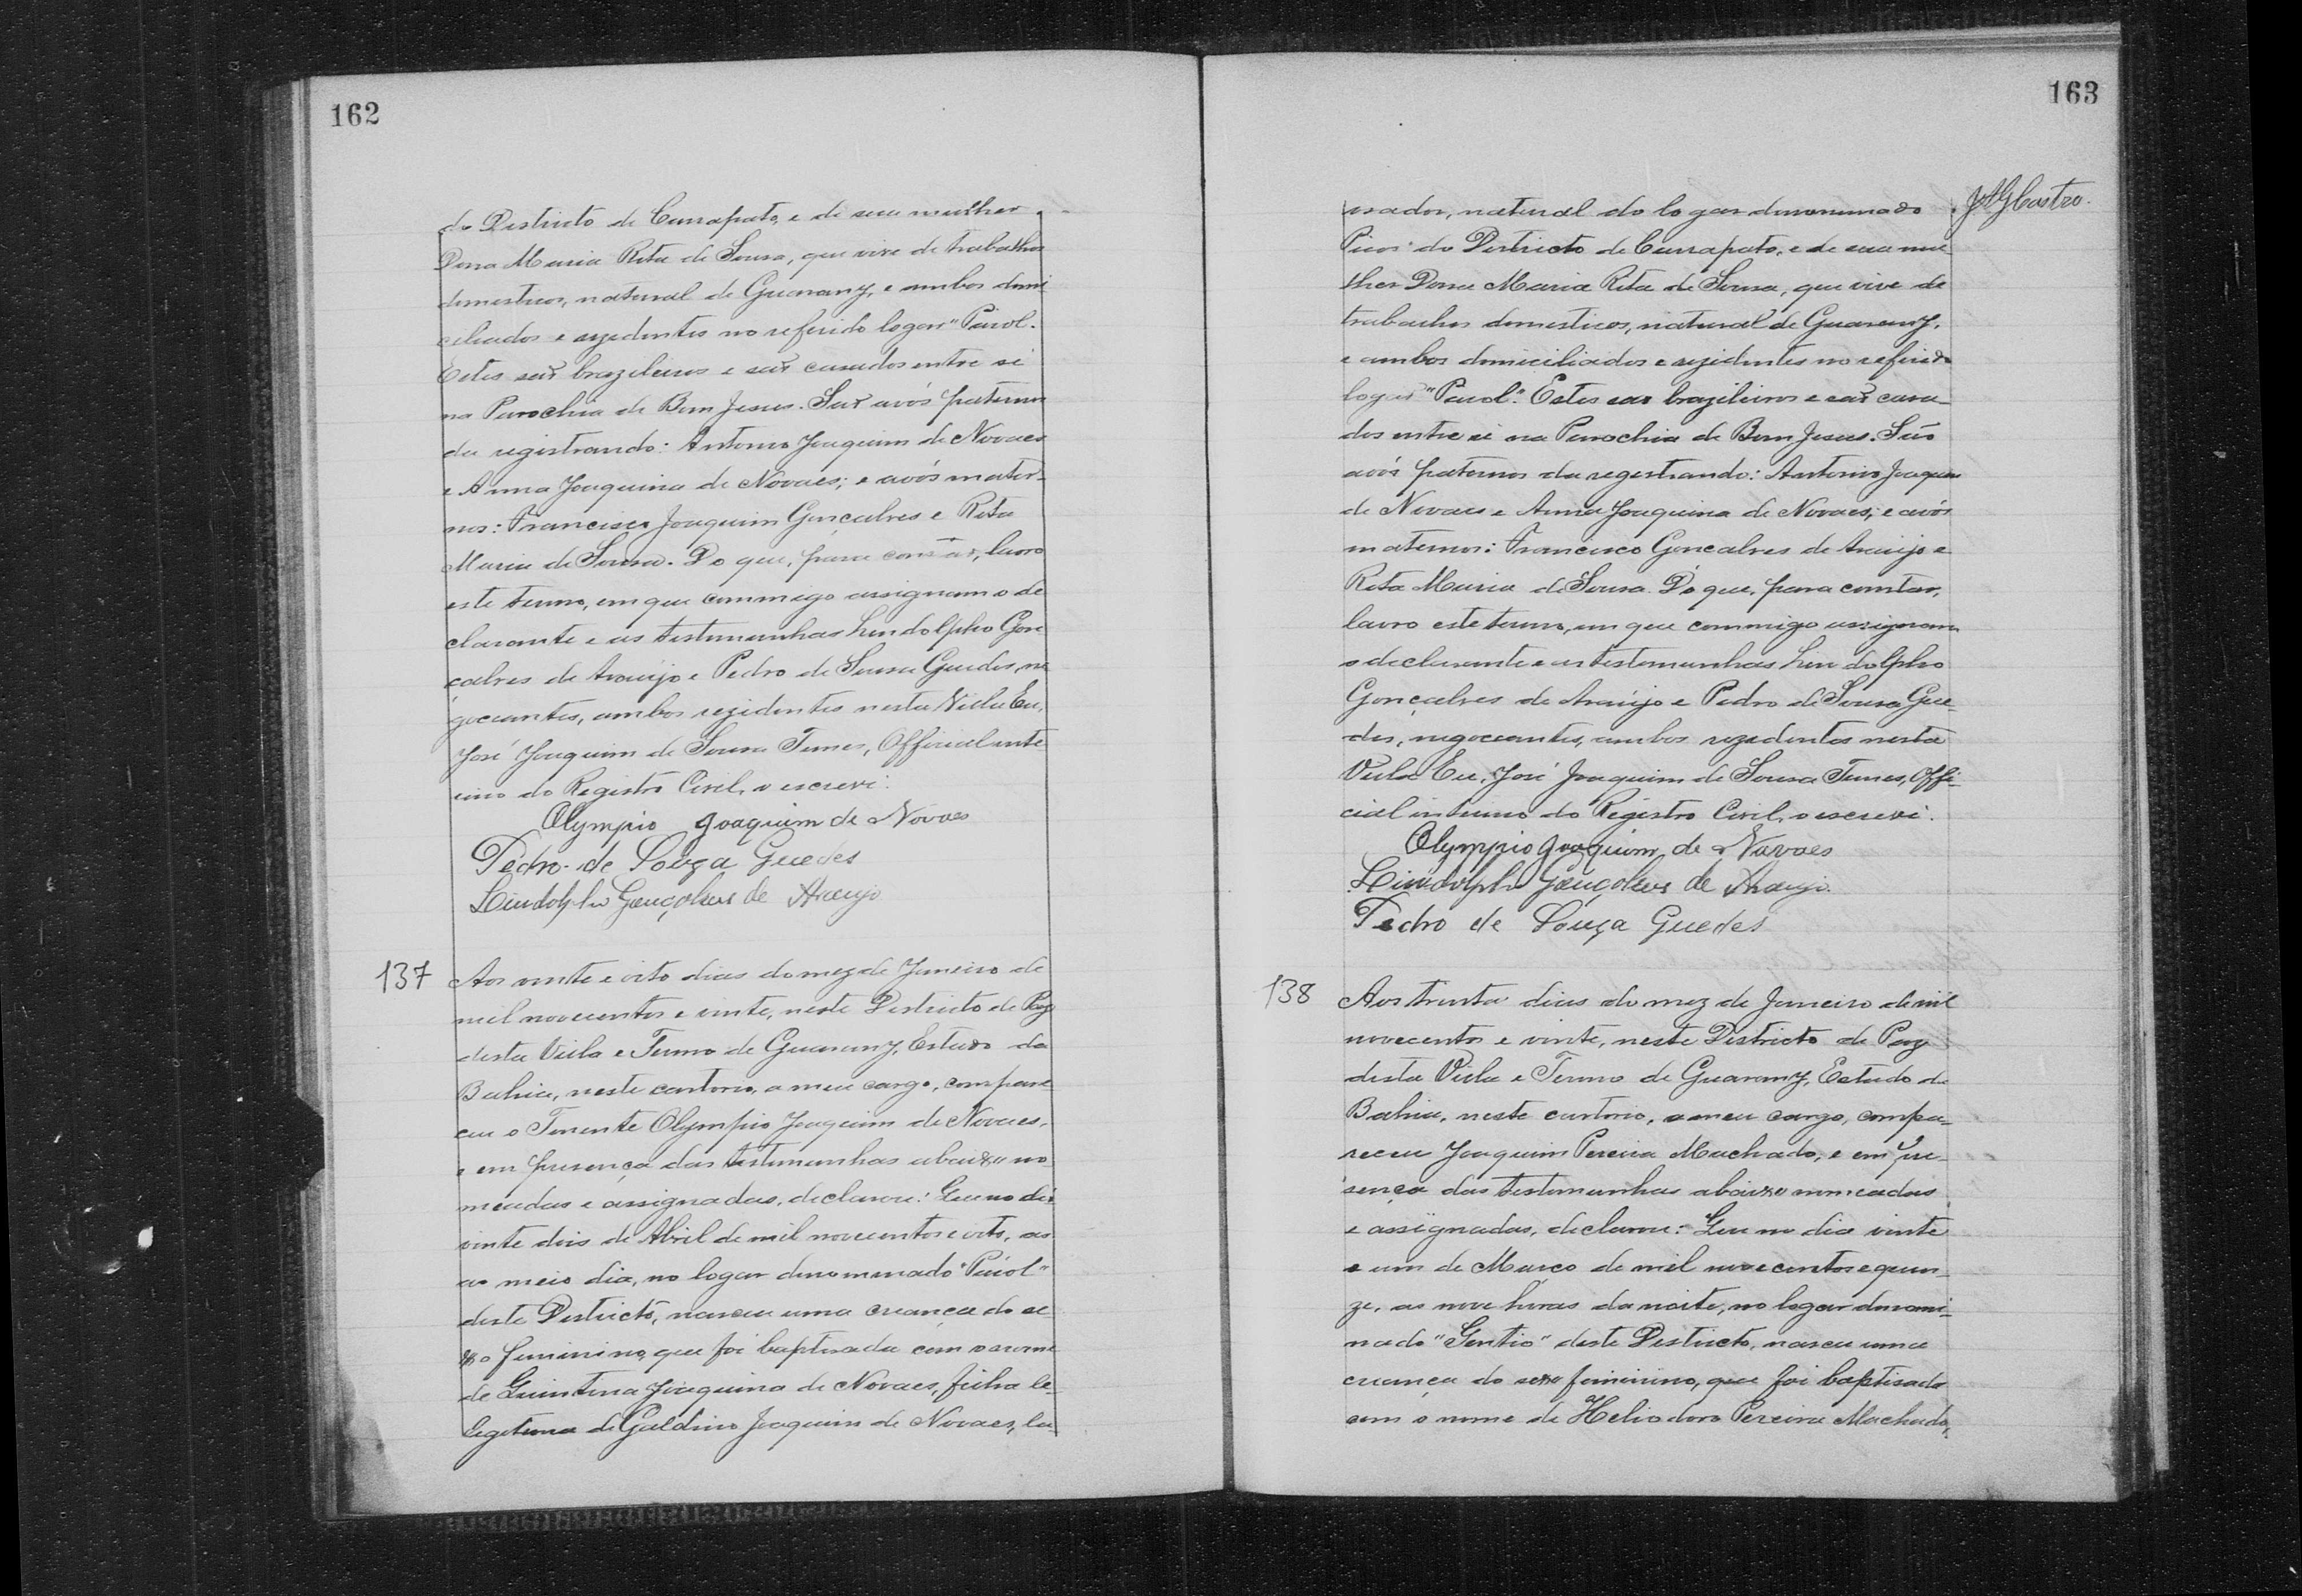 162
do Districto de Carrapato, e de sua mulher
Dona Maria Rita de Sousa, que vive de trabalhos
domesticos, natural de Guarany, e ambos domi
ciliados e rezidentes no referido logar "Paiol.
Estes saõ brazileiros e saõ casados entre si
na Parochia de Bom Jesus. Saõ avós paternos
da registrando: Antonio Joaquim de Novaes
e Anna Joaquina de Novaes; e avós mater-
nos: Francisco Joaquim Gonçalves e Rita
Maria de Sousa. Do que, para constar, lavro
este termo, em que commigo assignam o de
clarante e as testemunhas Lindolpho Gon
calves de Araújo e Pedro de Sousa Guedes, ne
gociantes, ambos rezidentes nesta Villa Eu,
José Joaquim de Sousa Tunes, Official inte
rino do Registro Civil, o escrevi.
Olympio Joaquim de Novaes
Pedro de Souza Guedes
Lindolpho Gonçalves de Araujo
137 Aos vinte e oito dias do mez de Janeiro de
mil novecentos e vinte, neste Districto de Paz
desta Villa e Termo de Guarany, Estado da
Bahia, neste cartorio, a meu cargo, compare
ceu o Tenente Olympio Joaquim de Novaes,
e em presença das testemunhas abaixo no
meadas e assignadas, declarou: Que no dia
vinte dois de Abril de mil novecentos e oito, as
ao meio dia, no logar denominado "Paiol"
deste Districto, nasceu uma creança do se
xo feminino, que foi baptisada com o nome
de Quintina Joaquina de Novaes, filha le-
legitima de Galdino Joaquim de Novaes, la-
163
JAGCastro.
vrador, natural do logar denominado
Picos do Districto de Carrapato, e de sua mu
lher Dona Maria Rita de Sousa, que vive de
trabalhos domesticos, natural de Guarany,
e ambos domiciliados e rezidentes no referido
logar "Paiol." Estes saõ brazileiros e saõ casa-
dos entre si na Parochia de Bom Jesus. Saõ
avós paternos da registrando: Antonio Joaquim
de Novaes e Anna Joaquina de Novaes; e avós
maternos: Francisco Goncalves de Araujo e
Rita Maria de Sousa. Do que, para constar,
lavro este termo, em que commigo assignam
o declarante e as testemunhas Lindolpho
Gonçalves de Araújo e Pedro de Sousa Gue-
des, negociantes, ambos rezidentes nesta
Villa Eu, José Joaquim de Sousa Tunes, Offi-
cial interino do Registro Civil, o escrevi.
Olympio Joaquim de Navaes
Lindolpho Gonçalves de Araujo
Pedro de Souza Guedes
138 Aos trinta dias do mez de Janeiro de mil
novecentos e vinte, neste Districto de Paz
desta Villa e Termo de Guarany, Estado da
Bahia, neste cartorio, a meu cargo, compa-
receu Joaquim Pereira Machado, e em pre-
sença das testemunhas abaixo nomeadas
e assignadas, declarou: Que no dia vinte
e um de Março de mil novecentos e quin-
ze, as nove horas da noite, no logar denomi-
nado "Gentio" deste Districto, nasceu uma
creança do sexo feminino, que foi baptisada
com o nome de Heliodora Pereira Machado,